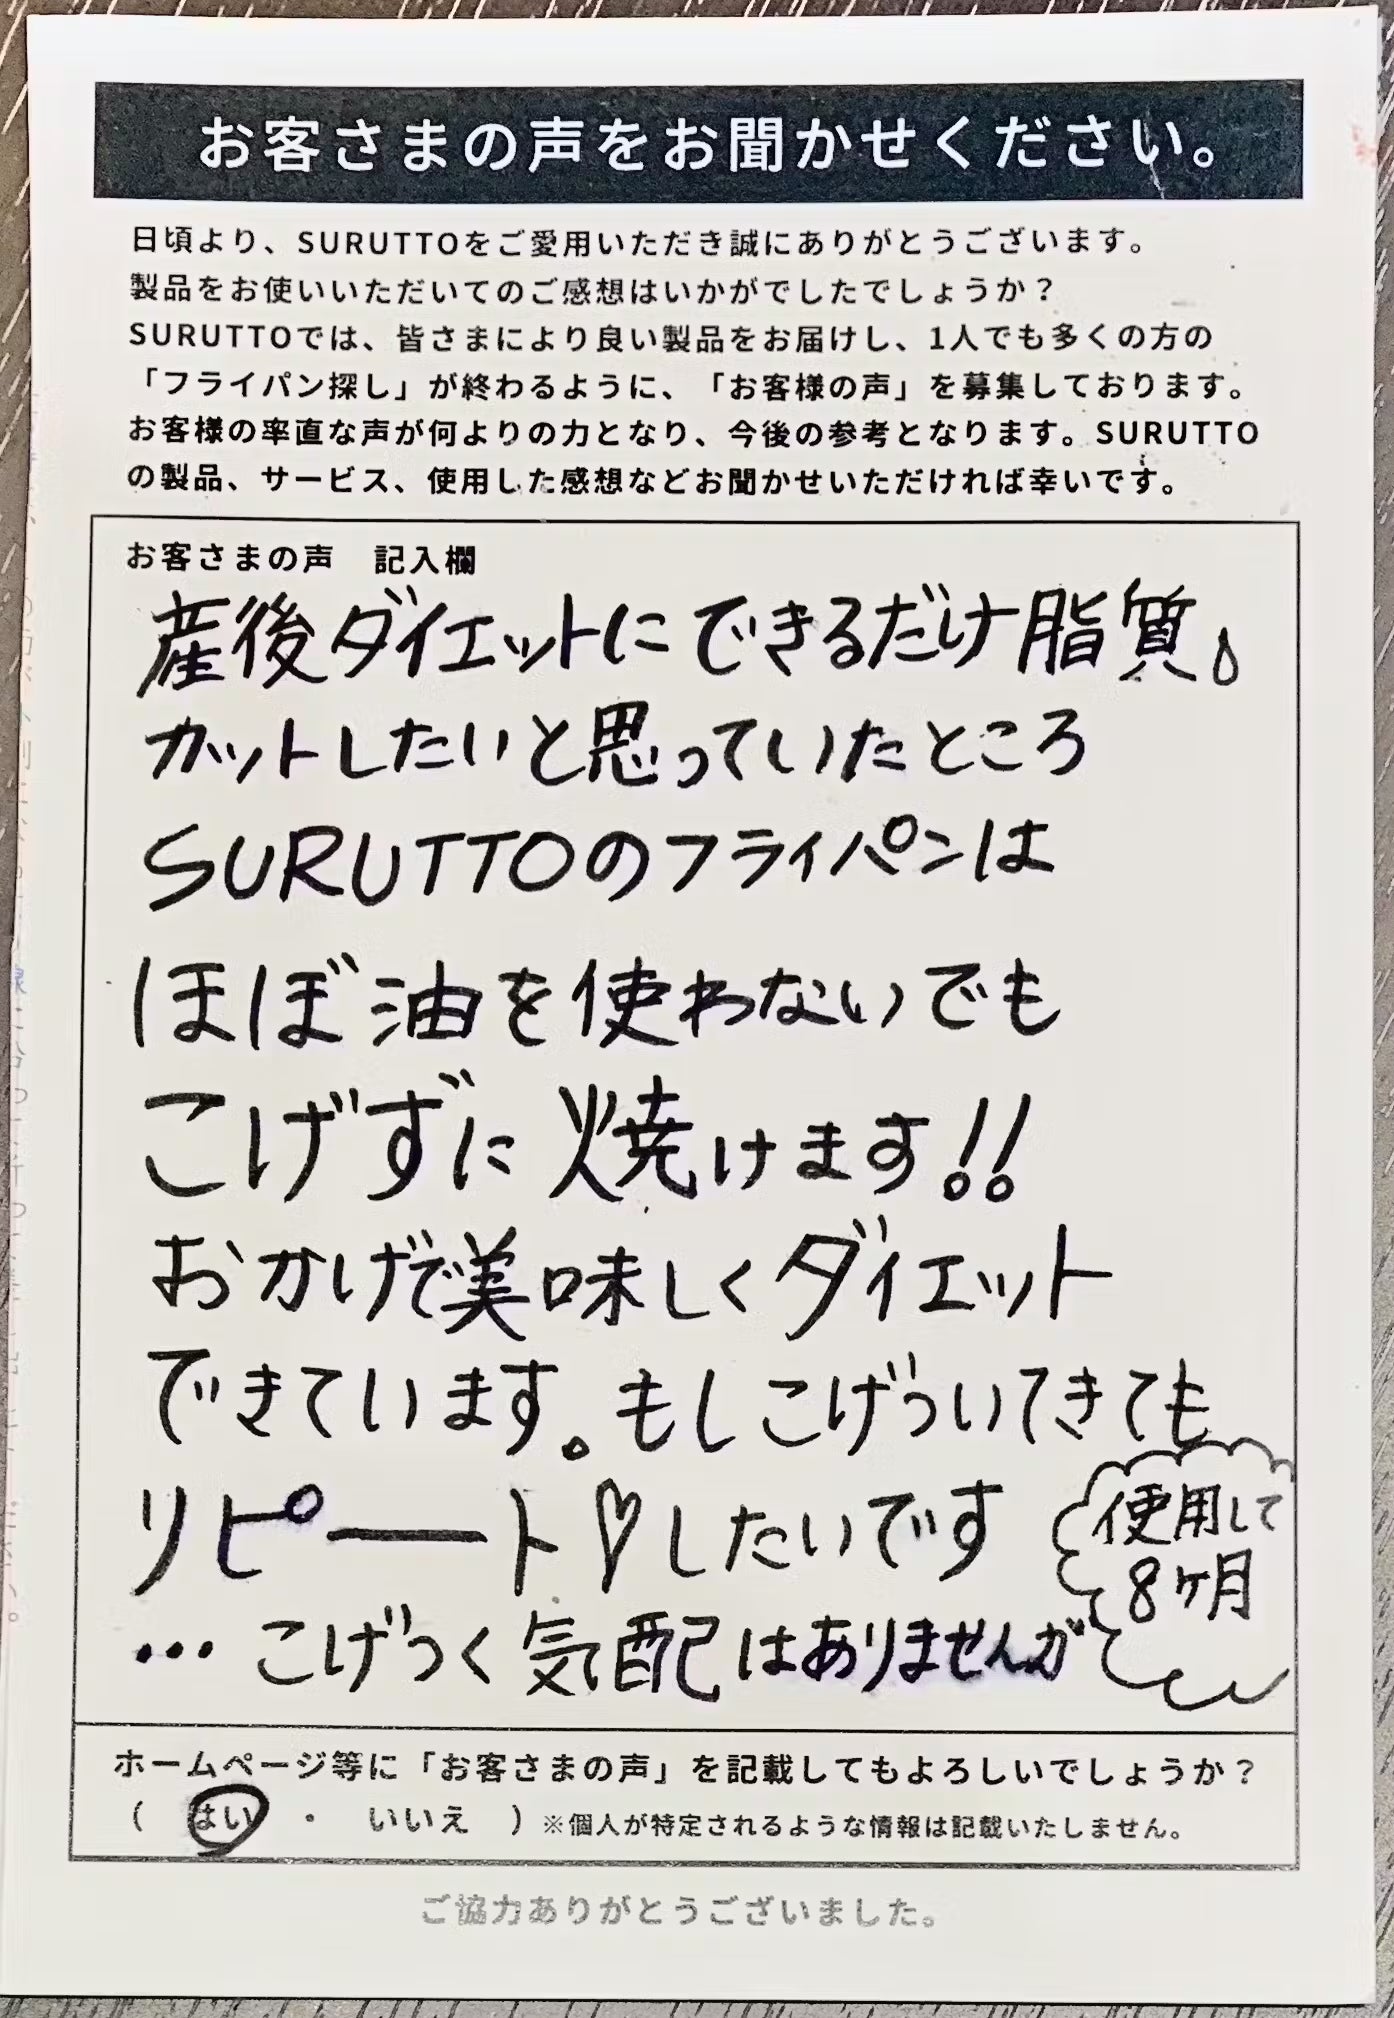 お客さまの声をお聞かせください。
日頃より、SURUTTOをご愛用いただき誠にありがとうございます。
製品をお使いいただいてのご感想はいかがでしたでしょうか？
SURUTTOでは、皆さまにより良い製品をお届けし、1人でも多くの方の
「フライパン探し」が終わるように、「お客様の声」を募集しております。
お客様の率直な声が何よりの力となり、今後の参考となります。SURUTTO
の製品、サービス、使用した感想などお聞かせいただければ幸いです。
お客さまの声　記入欄
産後ダイエットにできるだけ脂質
カットしたいと思っていたところ
SURUTTOのフライパンは
ほぼ油を使わないでも
こげずに焼けます!!
おかげで美味しくダイエット
できています。もしこげついてきても
リピート♡したいです
使用して
8ヶ月
…こげつく気配はありませんが
ホームページ等に「お客さまの声」を記載してもよろしいでしょうか？
（　はい　・　いいえ　）※個人が特定されるような情報は記載いたしません。
ご協力ありがとうございました。